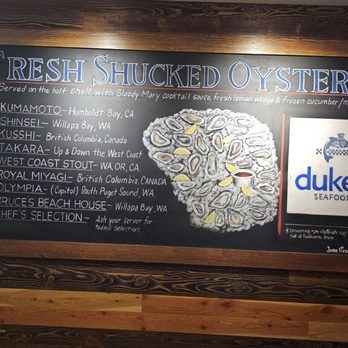 FRESH SHUCKED OYSTER
Served on the half shell, with Bloody Mary cocktail sauce, fresh lemon wedge & frozen cucumber/m
KUMAMOTO- Humboldt Bay, CA
SHINSEI- Willapa Bay, WA
KUSSHI- British Columbia, Canada
TAKARA- Up & Down the West Coast
WEST COAST STOUT- WA, OR, CA
ROYAL MIYAGI- British Columbia, CANADA
OLYMPIA- (Capitol) South Puget Sound WA
BRUCES BEACH HOUSE- Willapa Bay, WA
CHEF'S SELECTION- Ask your server for
today's selection!
duke
SEAFOOD